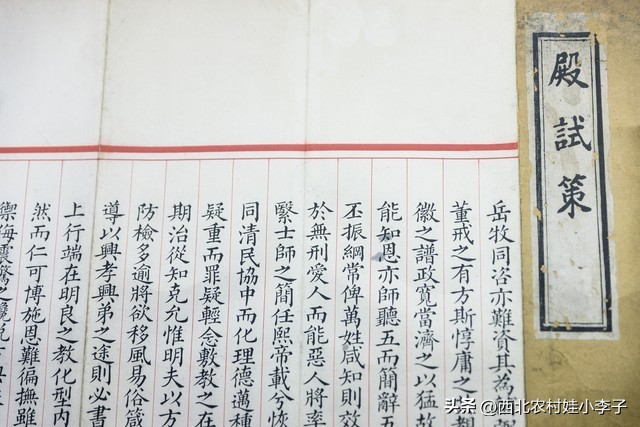 殿試策
岳牧同咨亦難資其為
董戒之有方斯惇庸之
徽之譜政寬當濟之以猛故
能知恩亦師聽五而簡辭五
丕振綱常俾萬姓咸知則效
於無刑愛人而能惡人將率
繄士師之簡任熙帝載兮恢
同清民協中而化理德邁種
疑重而罪疑輕念敷教之在
期治從知克允惟明夫以方
防檢多逾將欲移風易俗箴
導以興孝興弟之途則必書
上行端在明良之教化型內
然而仁可博施恩難徧撫雖
頭条 @西北农村娃小李子